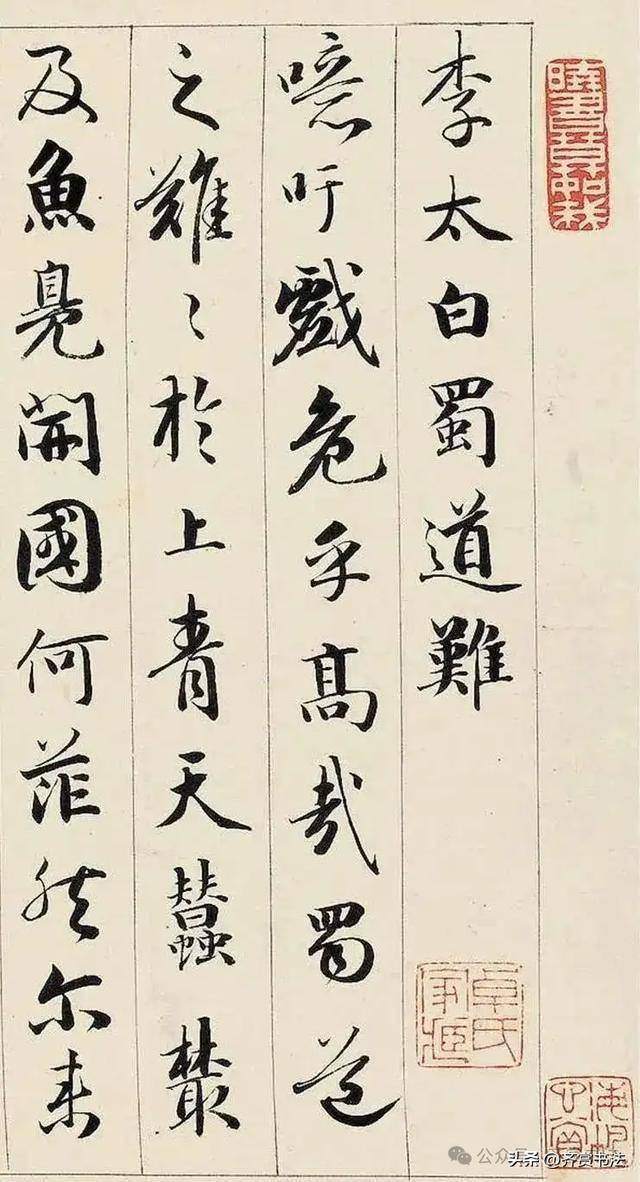 李太白蜀道難
噫吁戲危乎高哉蜀道
之難〻於上青天蠶叢
及魚鳧開國何茫然尔来
头条 @齐赏书法